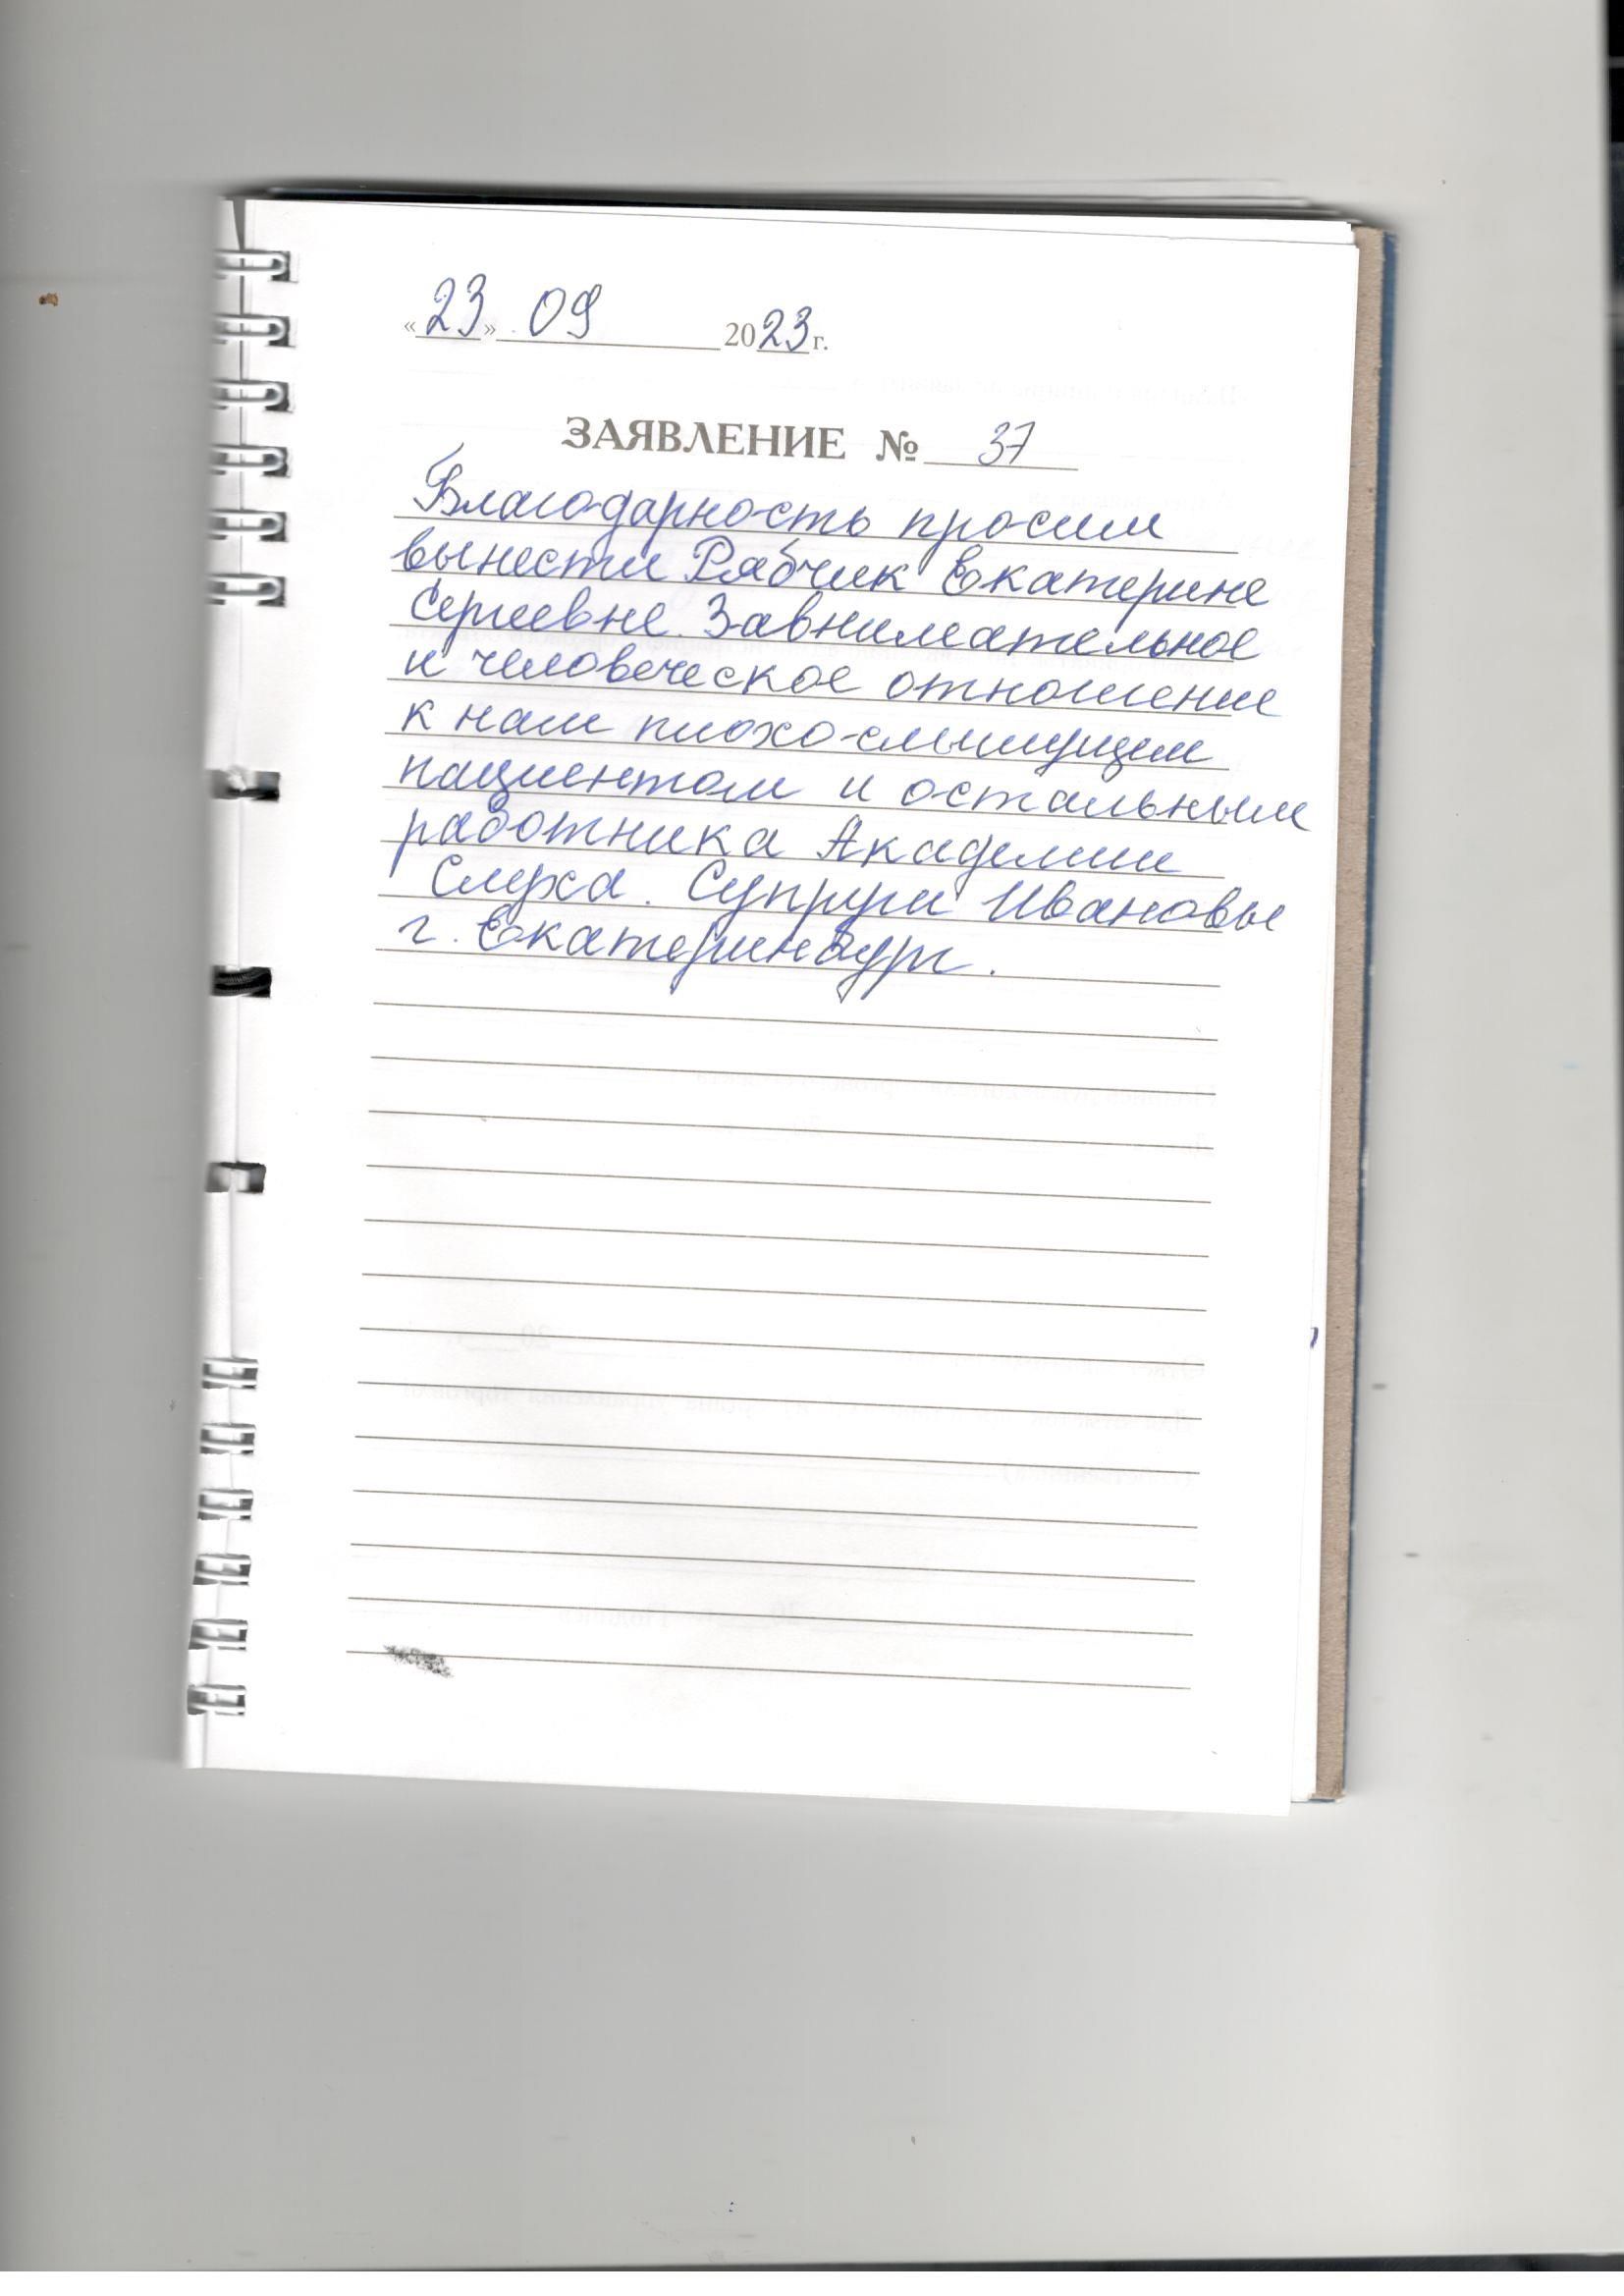 «23» 09 2023 г.
ЗАЯВЛЕНИЕ № 37
Благодарность просим
вынести Рябчик Екатерине
Сергеевне. За внимательное
и человеческое отношение
к нам плохо-слышущем
пациентом и остальным
работника Академии
Слуха. Супруги Ивановы
г. Екатеринбург.